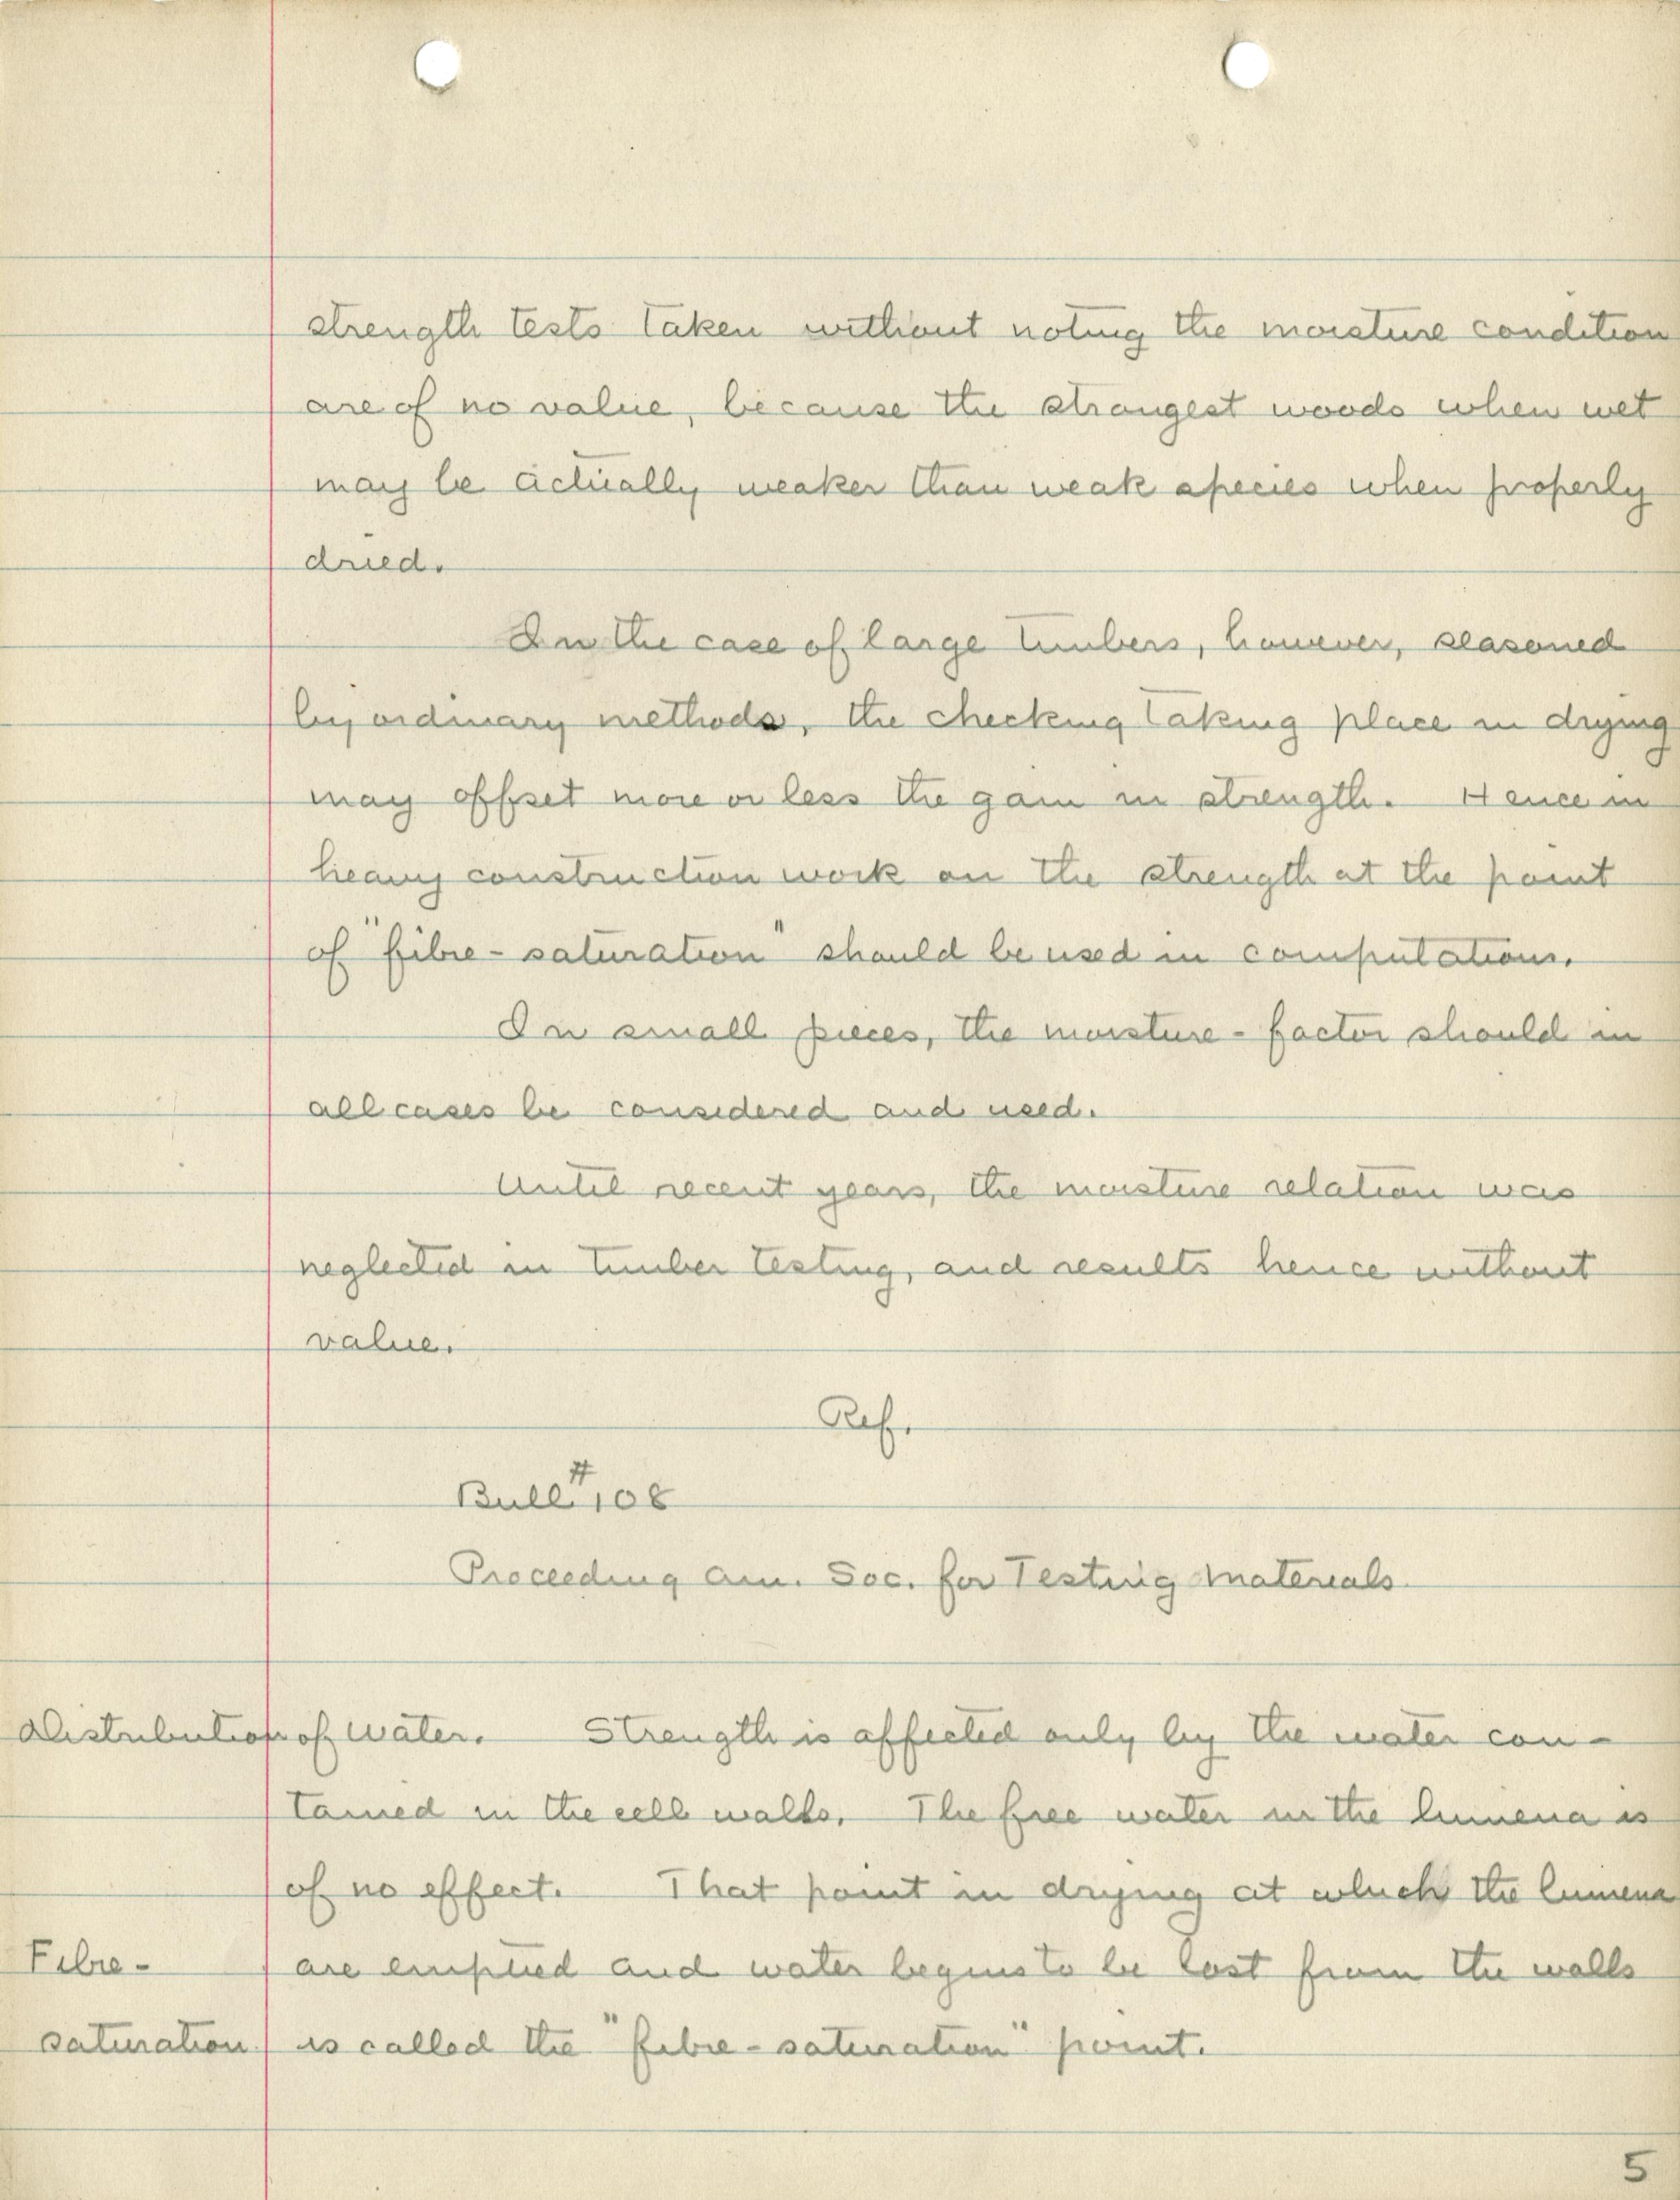 strength tests taken without noting the moisture condition
are of no value, because the strongest woods when wet
may be actually weaker than weak species when properly
dried.
In the case of large timbers, however, seasoned
by ordinary methods, the checking taking place in drying
may offset more or less the gain in strength. Hence in
heavy construction work on the strength at the point
of "fibre-saturation" should be used in computations.
In small pieces, the moisture-factor should in
all cases be considered and used.
Until recent years, the moisture relation was
neglected in timber testing, and results hence without
value.
Ref.
Bull. #108
Proceeding Am. Soc. for Testing Materials
Distribution of water. Strength is affected only by the water con-
tained in the cell walls. The free water in the lumena is
of no effect. That point in drying at which the lumena
Fibre- are emptied and water begins to be lost from the walls
saturation is called the "fibre-saturation" point.
5